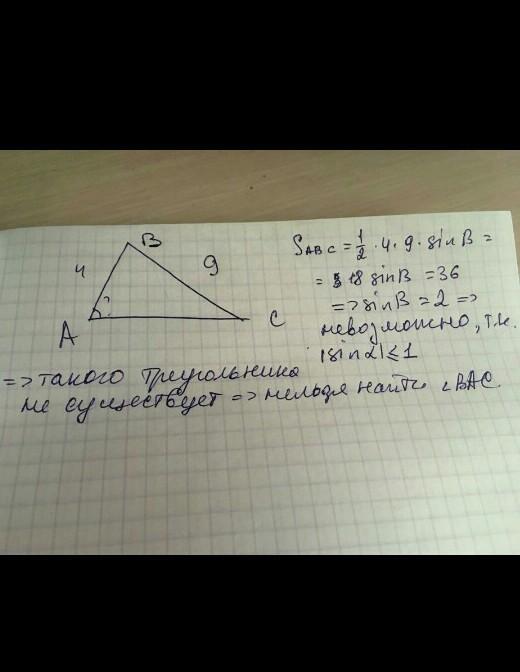 B
4
9
A
C
S_ABC = 1/2 · 4 · 9 · sin B =
= 18 sin B = 36
=> sin B = 2 =>
невозможно, т.к.
|sin α| ≤ 1
=> такого треугольника
не существует => нельзя найти ∠BAC.